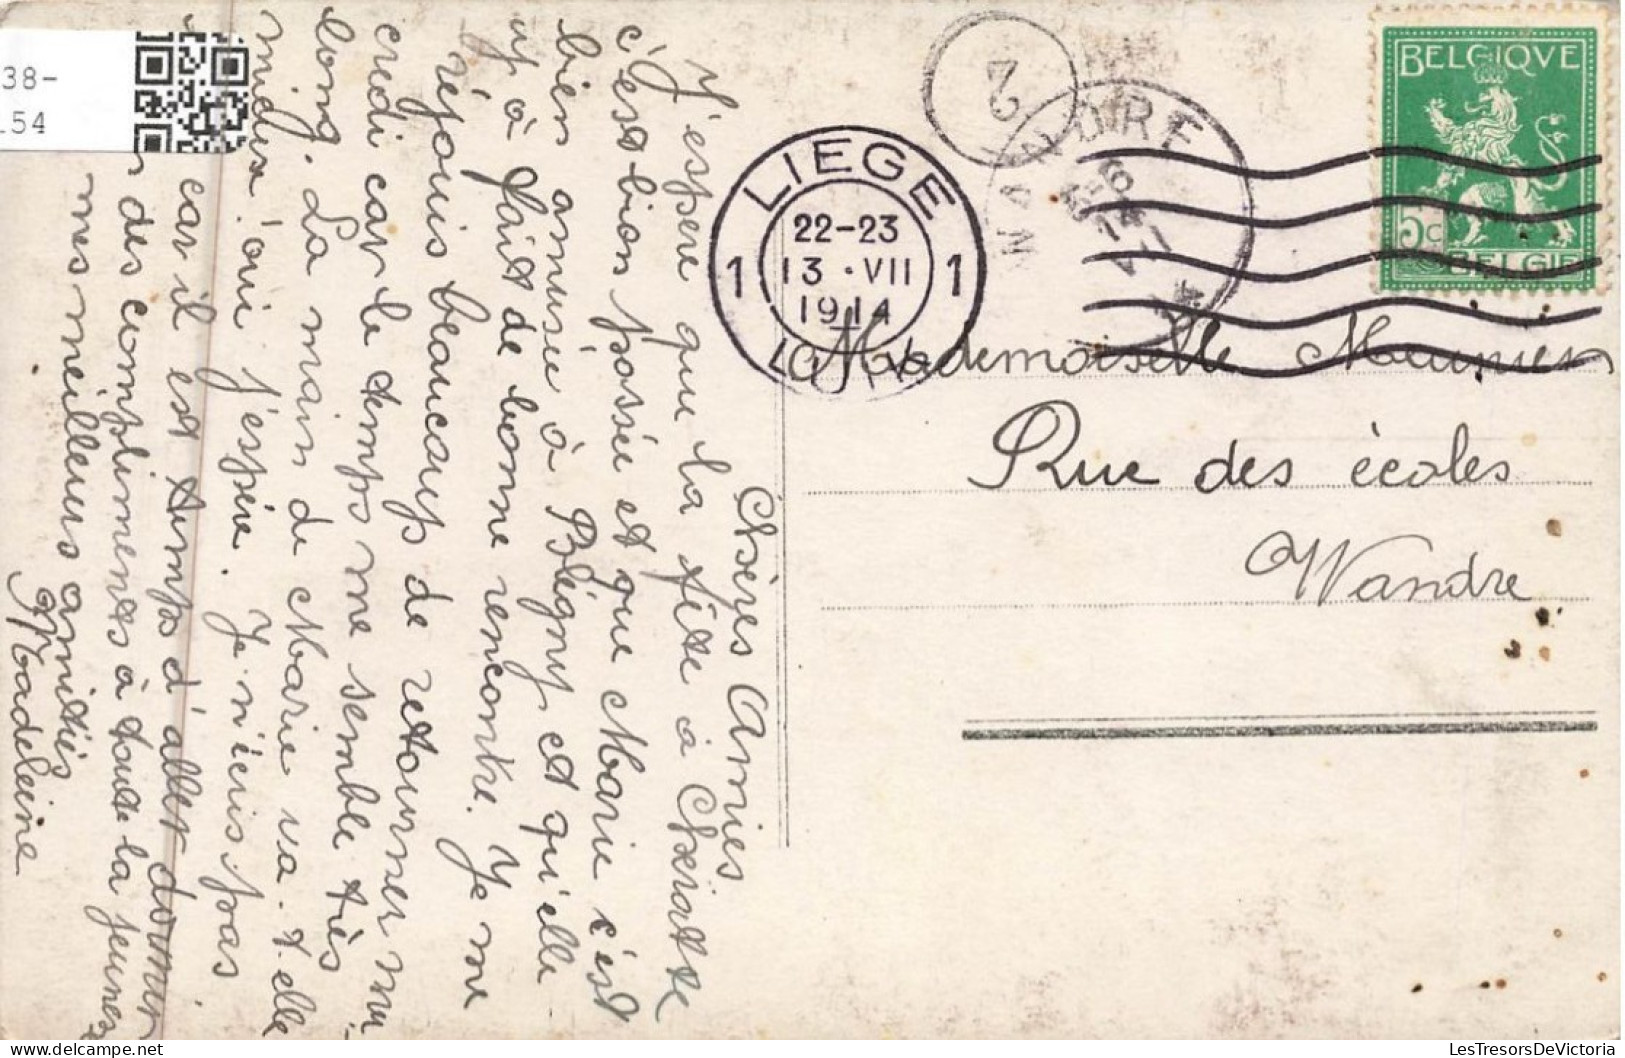 38-
154
BELGIQVE
5c
BELGIE
LIEGE
1 22-23 1
13 · VII
1914
WANDRE
2
Mademoiselle Meunier
Rue des écoles
Wandre
Chères Amies
J'espère que la fête à Cheratte
c'est bien passée et que Marie s'est
bien amusée à Blégny et qu'elle
y à fait de bonne rencontre. Je me
réjouis beaucoup de retourner mer-
credi car le temps me semble très
long. La main de Marie va-t-elle
mieux? oui j'espère. Je n'écris pas
car il est temps d'aller dormir.
des compliments à toute la jeunesse
mes meilleurs amitiés
Madeleine
LesTresorsDeVictoria